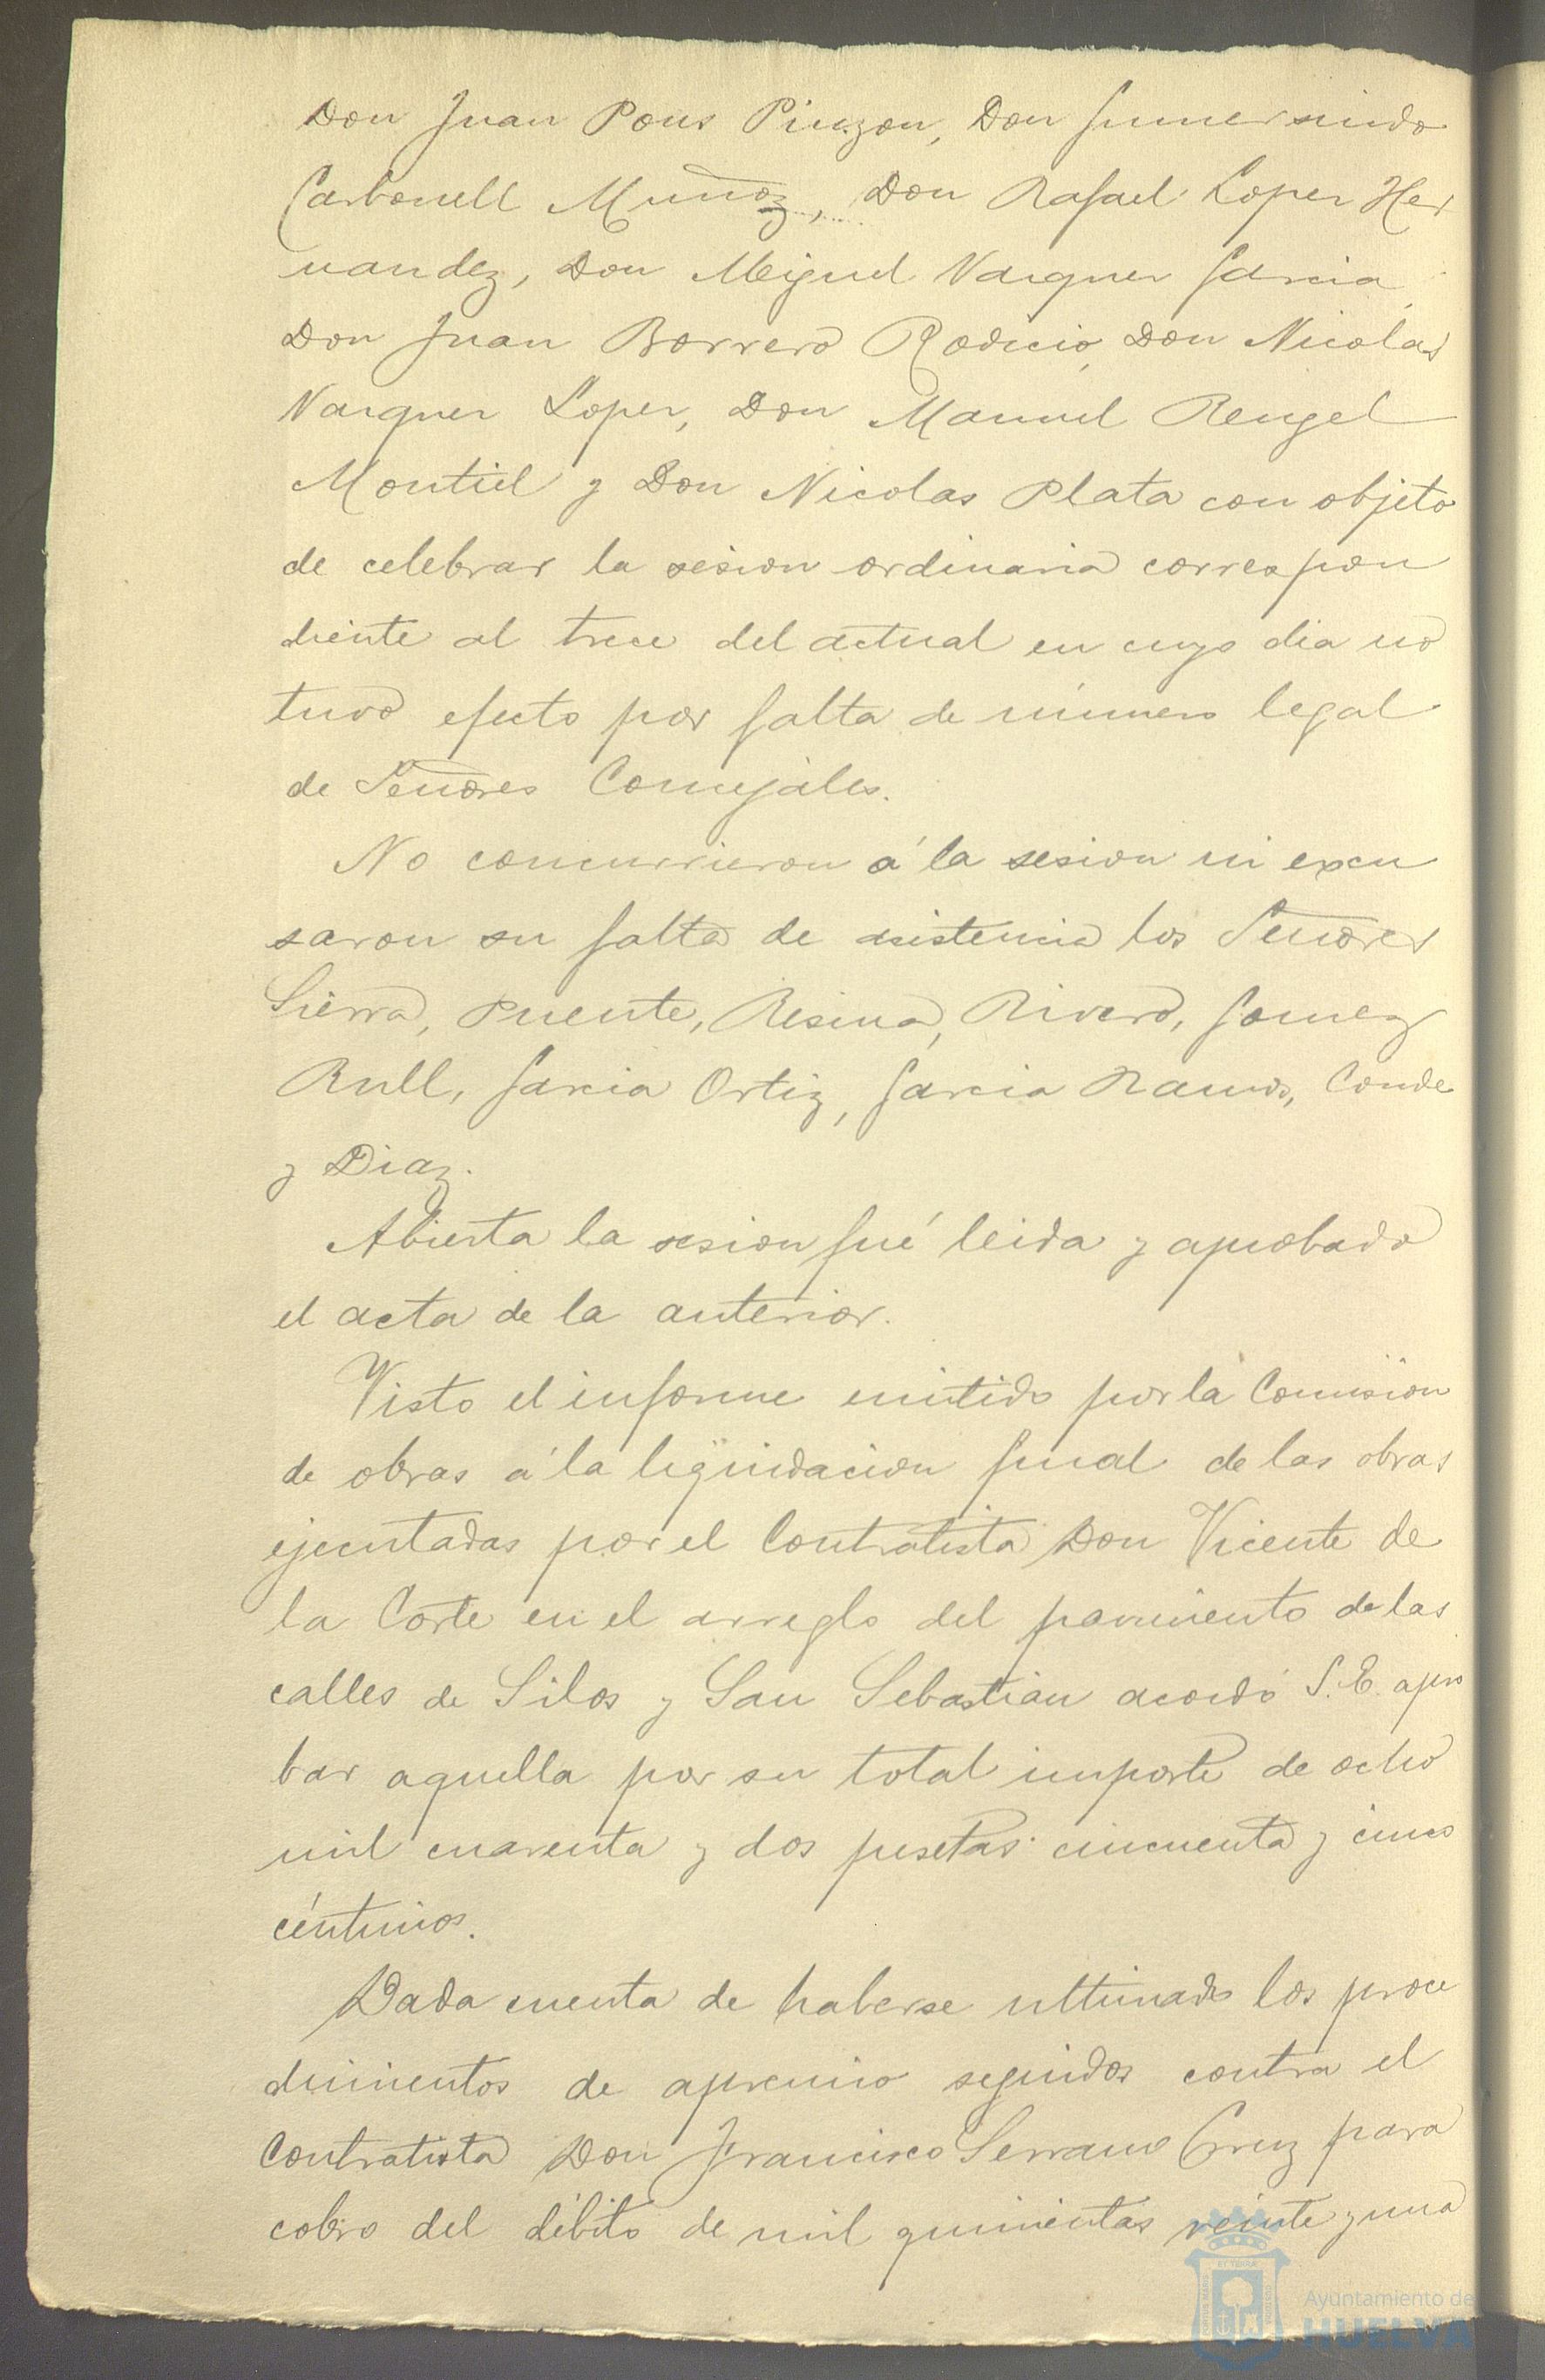 Don Juan Pons Pinzon, Don Gumersindo
Carbonell Muñoz, Don Rafael Lopez Her
nandez, Don Miguel Vazquez Garcia,
Don Juan Borrero Rodicio, Don Nicolas
Vazquez Lopez, Don Manuel Rengel
Montiel y Don Nicolas Plata con objeto
de celebrar la sesion ordinaria correspon
diente al trece del actual en cuyo dia no
tuvo efecto por falta de número legal
de Señores Concejales.
No concurrieron á la sesion ni excu
saron su falta de asistencia los Señores
Sierra, Puente, Resina, Rivero, Gomez
Rull, Garcia Ortiz, Garcia Ramos, Conde
y Diaz.
Abierta la sesion fué leida y aprobada
el acta de la anterior.
Visto el informe emitido por la Comision
de obras á la liquidacion final de las obras
ejecutadas por el Contratista Don Vicente de
la Corte en el arreglo del pavimento de las
calles de Silos y San Sebastian acordó S.E. apro
bar aquella por su total importe de ocho
mil cuarenta y dos pesetas cincuenta y cinco
céntimos.
Dada cuenta de haberse ultimado los proce
dimientos de apremio seguidos contra el
Contratista Don Francisco Serrano Cruz para
cobro del débito de mil quinientas veinte y una
Ayuntamiento de
HUELVA